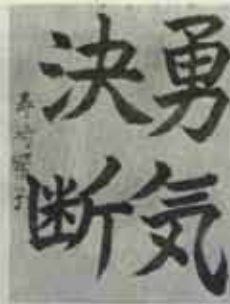 勇気
決断